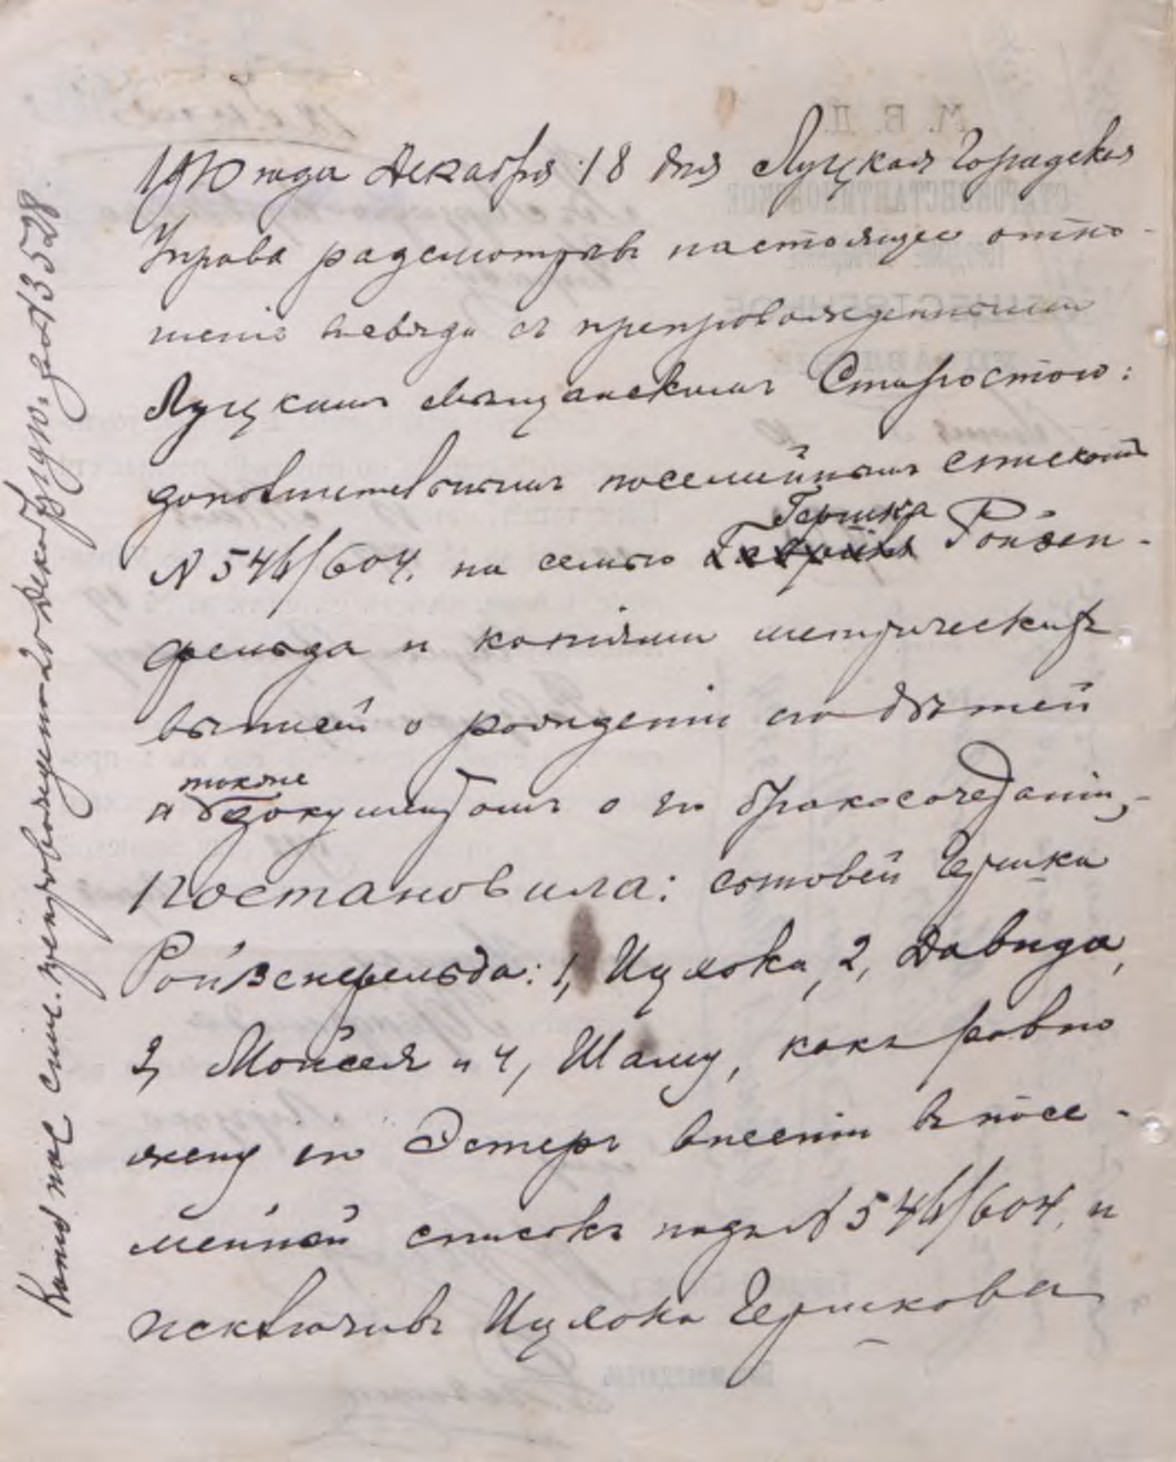 1910 года Декабря 18 дня Луцкая Городская
Управа разсмотрѣвъ настоящее отно-
шенiе наряду съ препровожденными
Луцкимъ мѣщанскимъ Старостою:
дополнительнымъ посемейнымъ спискомъ
N 546/604, на семью Гершка Ройзен-
фельда и копiями метрическихъ
выписей о рожденiи его дѣтей
и также документомъ о его бракосочетанiи,-
Постановила: сыновей Гершка
Ройзенфельда: 1, Ицхока, 2, Давида,
3, Мойсея и 4, Шаму, какъ равно
жену его Эстеръ внести въ посе-
мейный списокъ подъ N 546/604, и
исключивъ Ицхока Гершкова
Копiя пос. спис. препровождена 20 Декабря 1910 г. за N 13528.